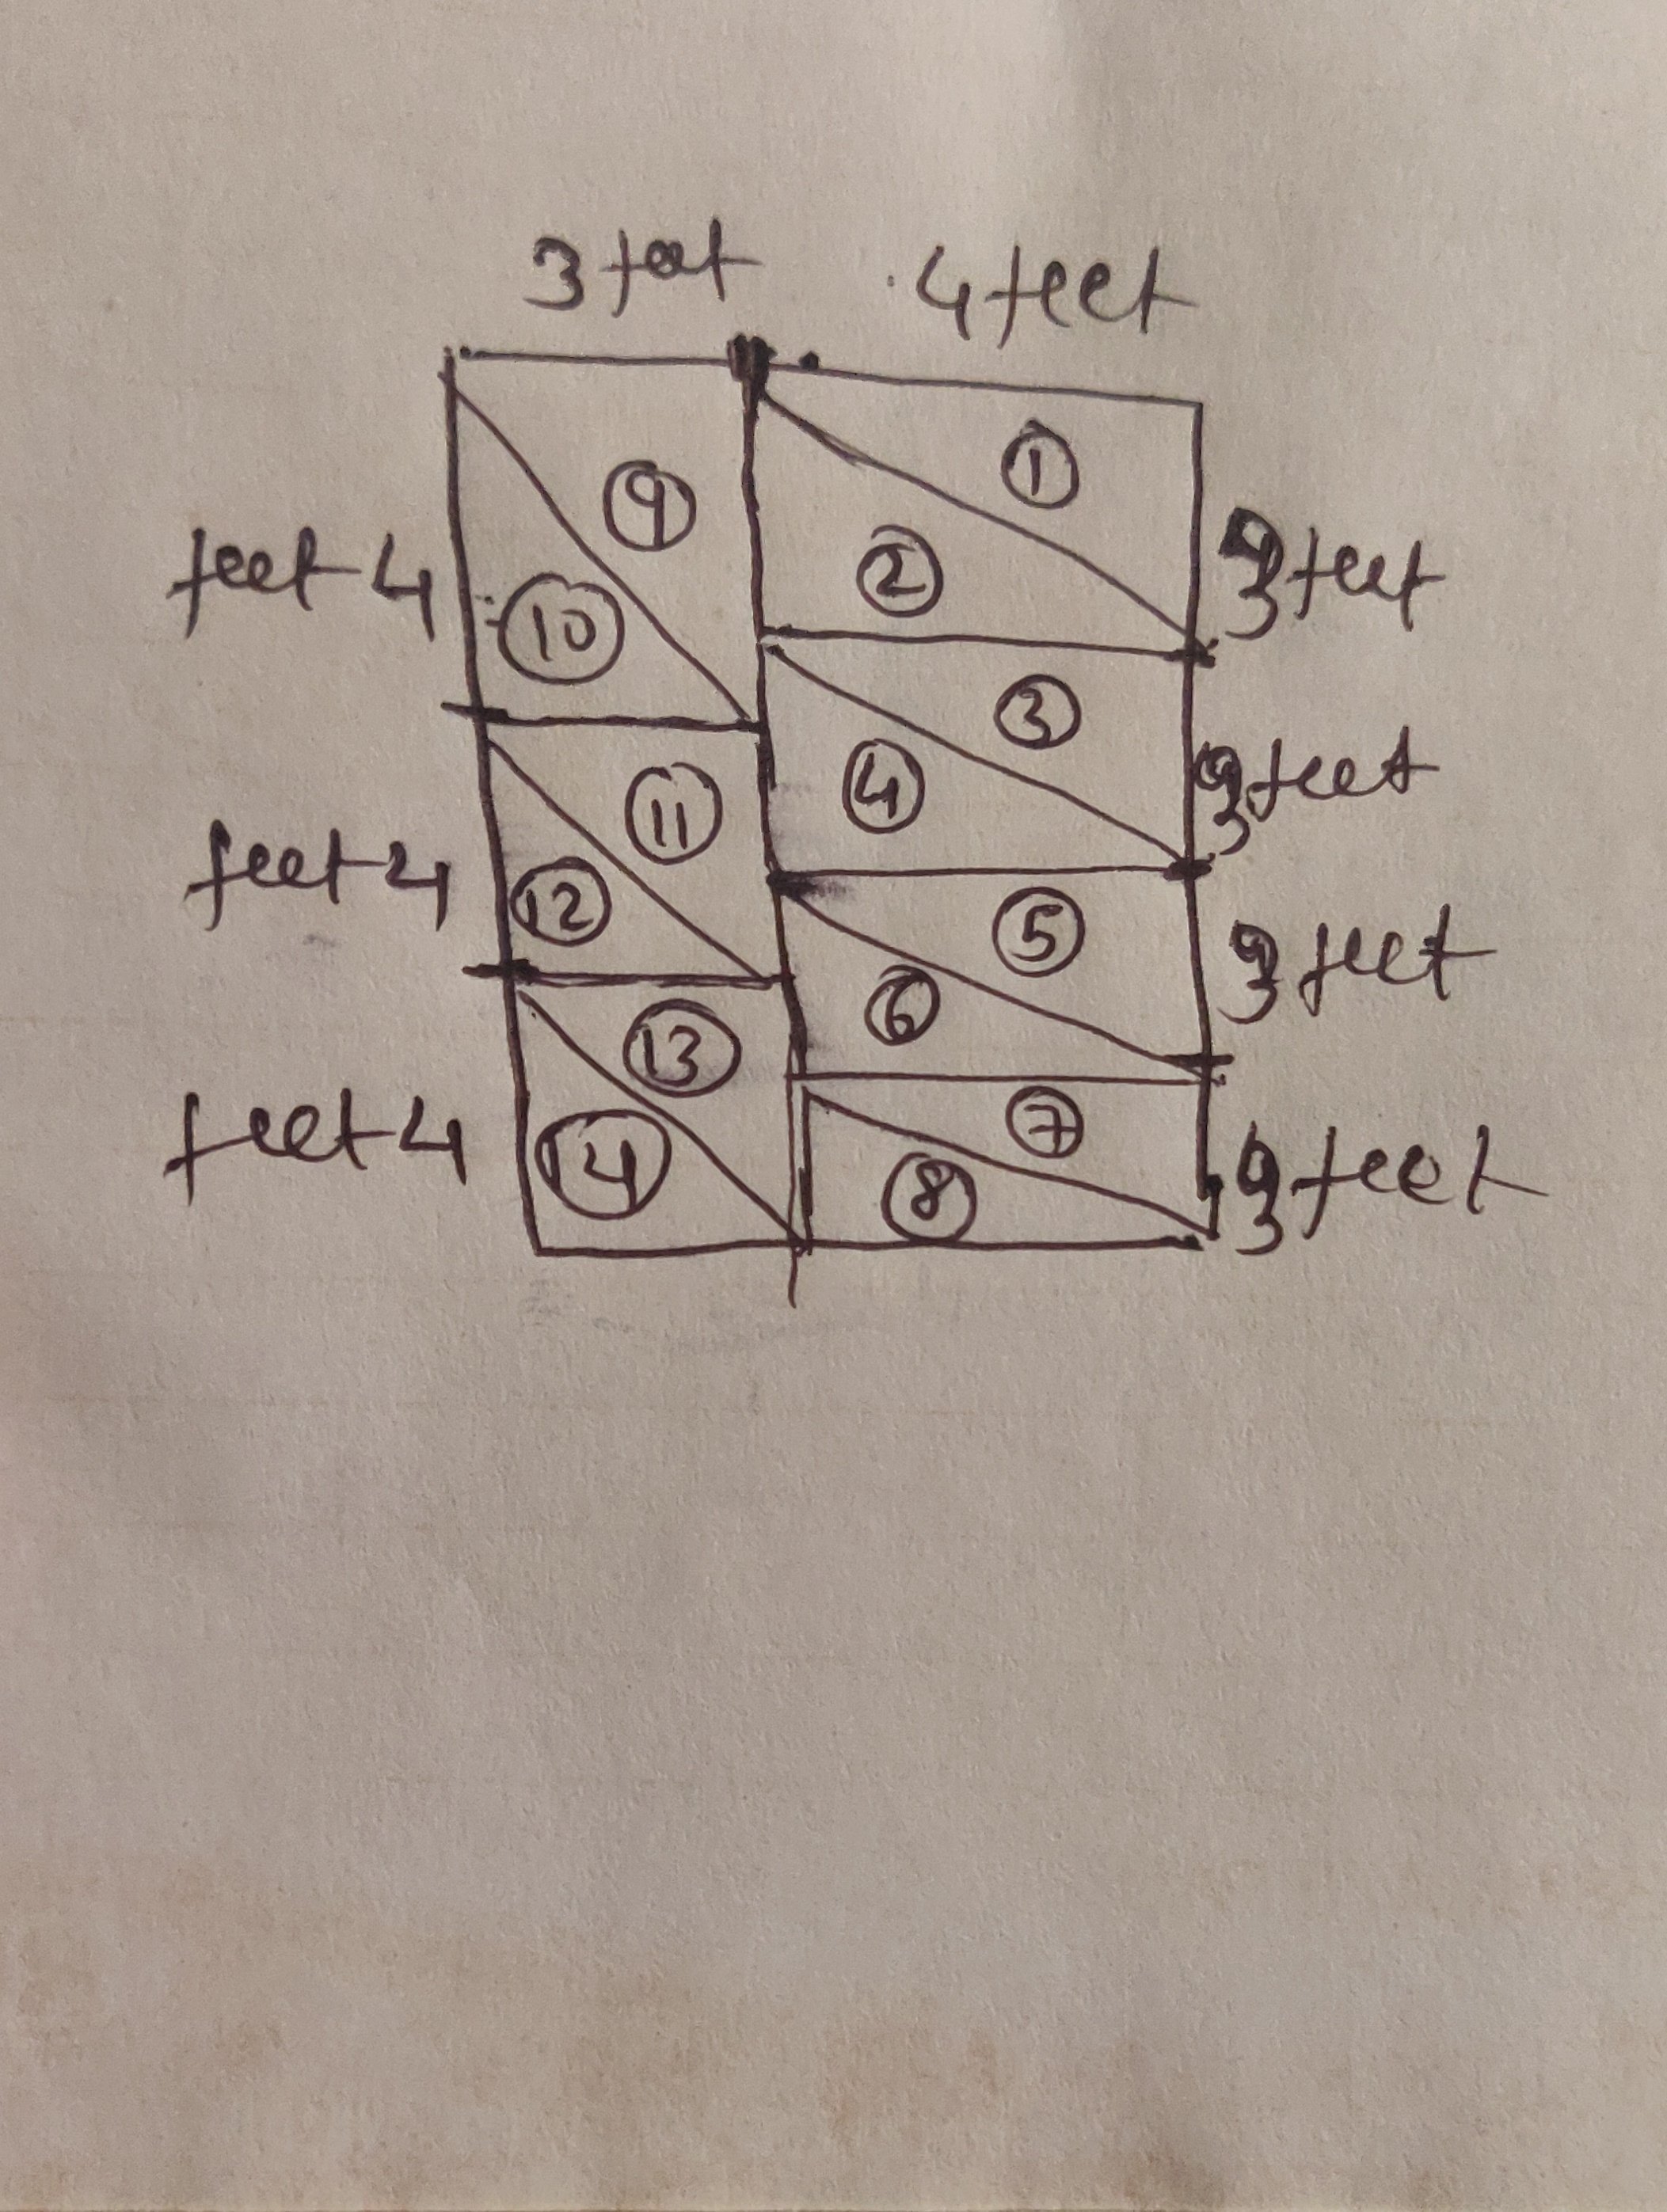 3 feet 4 feet
9
1
feet 4
10
2
3 feet
3
11
4
3 feet
feet 4
12
5
3 feet
6
13
7
feet 4
14
8
3 feet